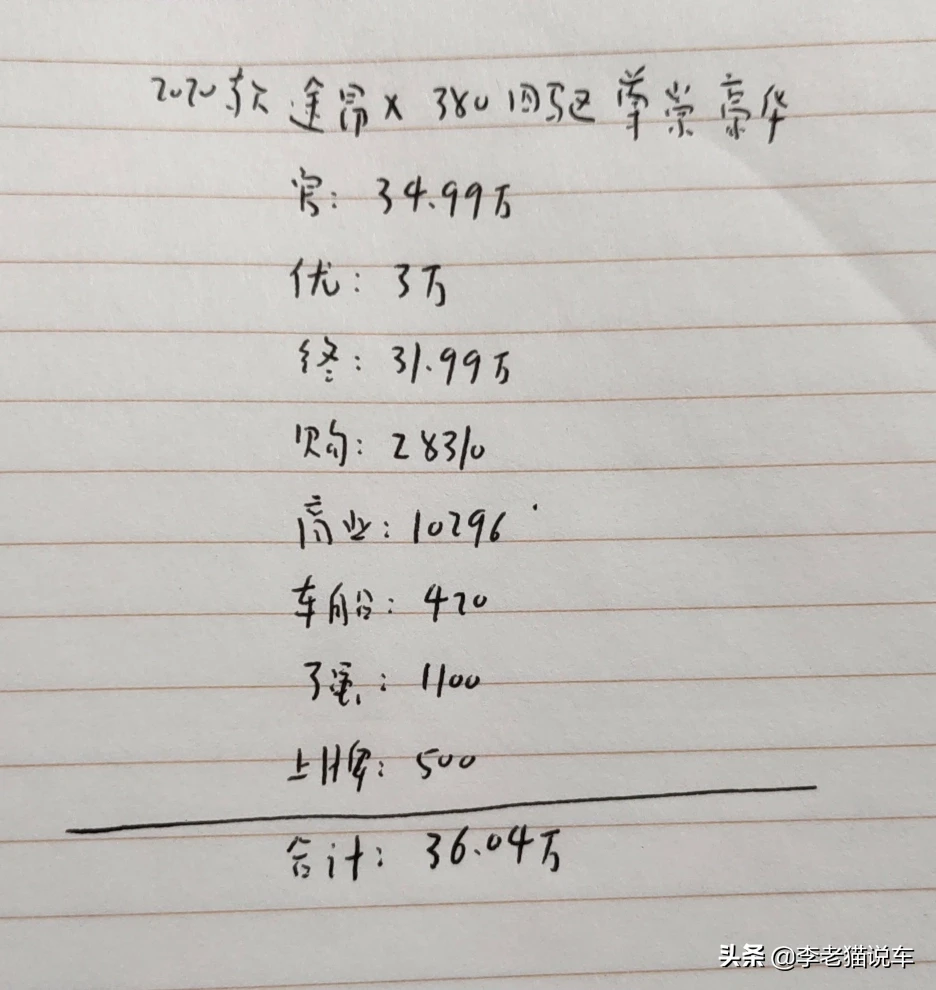 2020款途昂X 380四驱尊崇豪华
官: 34.99万
优: 3万
终: 31.99万
购: 28310
商业: 10296
车船: 420
交强: 1100
上牌: 500
合计: 36.04万
头条 @李老猫说车